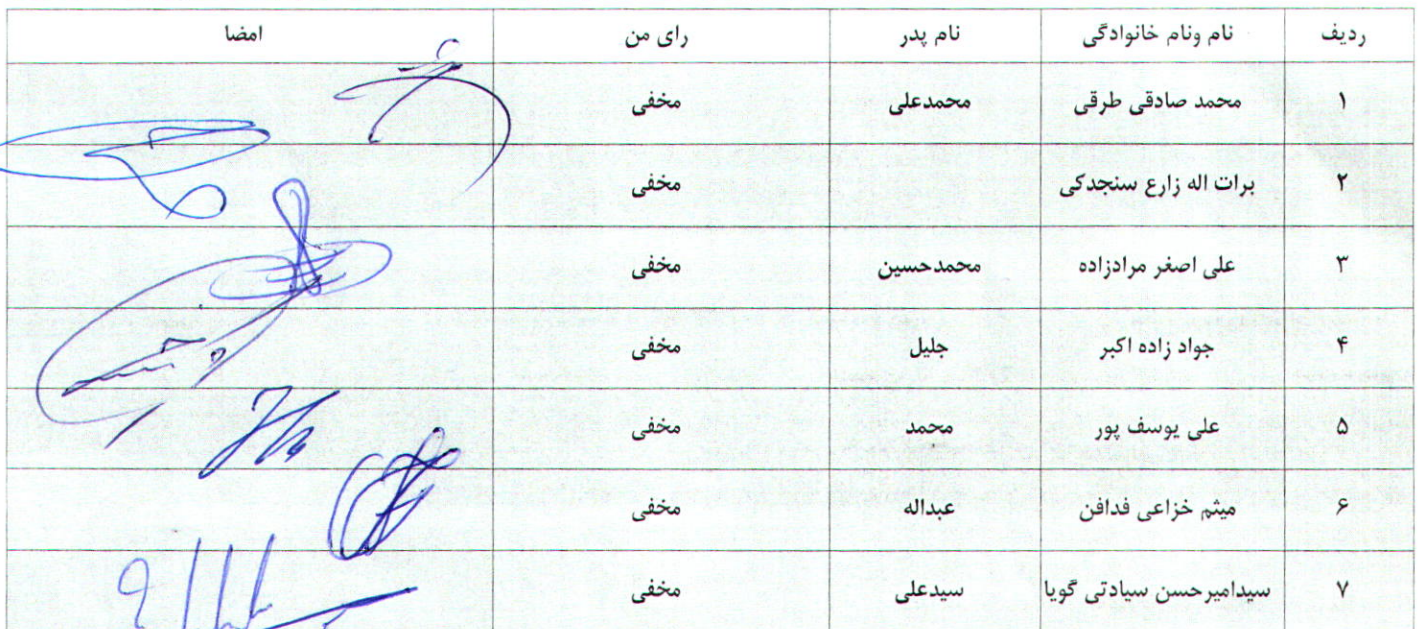 ردیف نام ونام خانوادگی نام پدر رای من امضا
۱ محمد صادقی طرقی محمدعلی مخفی
۲ برات اله زارع سنجدکی مخفی
۳ علی اصغر مرادزاده محمدحسین مخفی
۴ جواد زاده اکبر جلیل مخفی
۵ علی یوسف پور محمد مخفی
۶ میثم خزاعی فدافن عبداله مخفی
۷ سیدامیرحسن سیادتی گویا سیدعلی مخفی